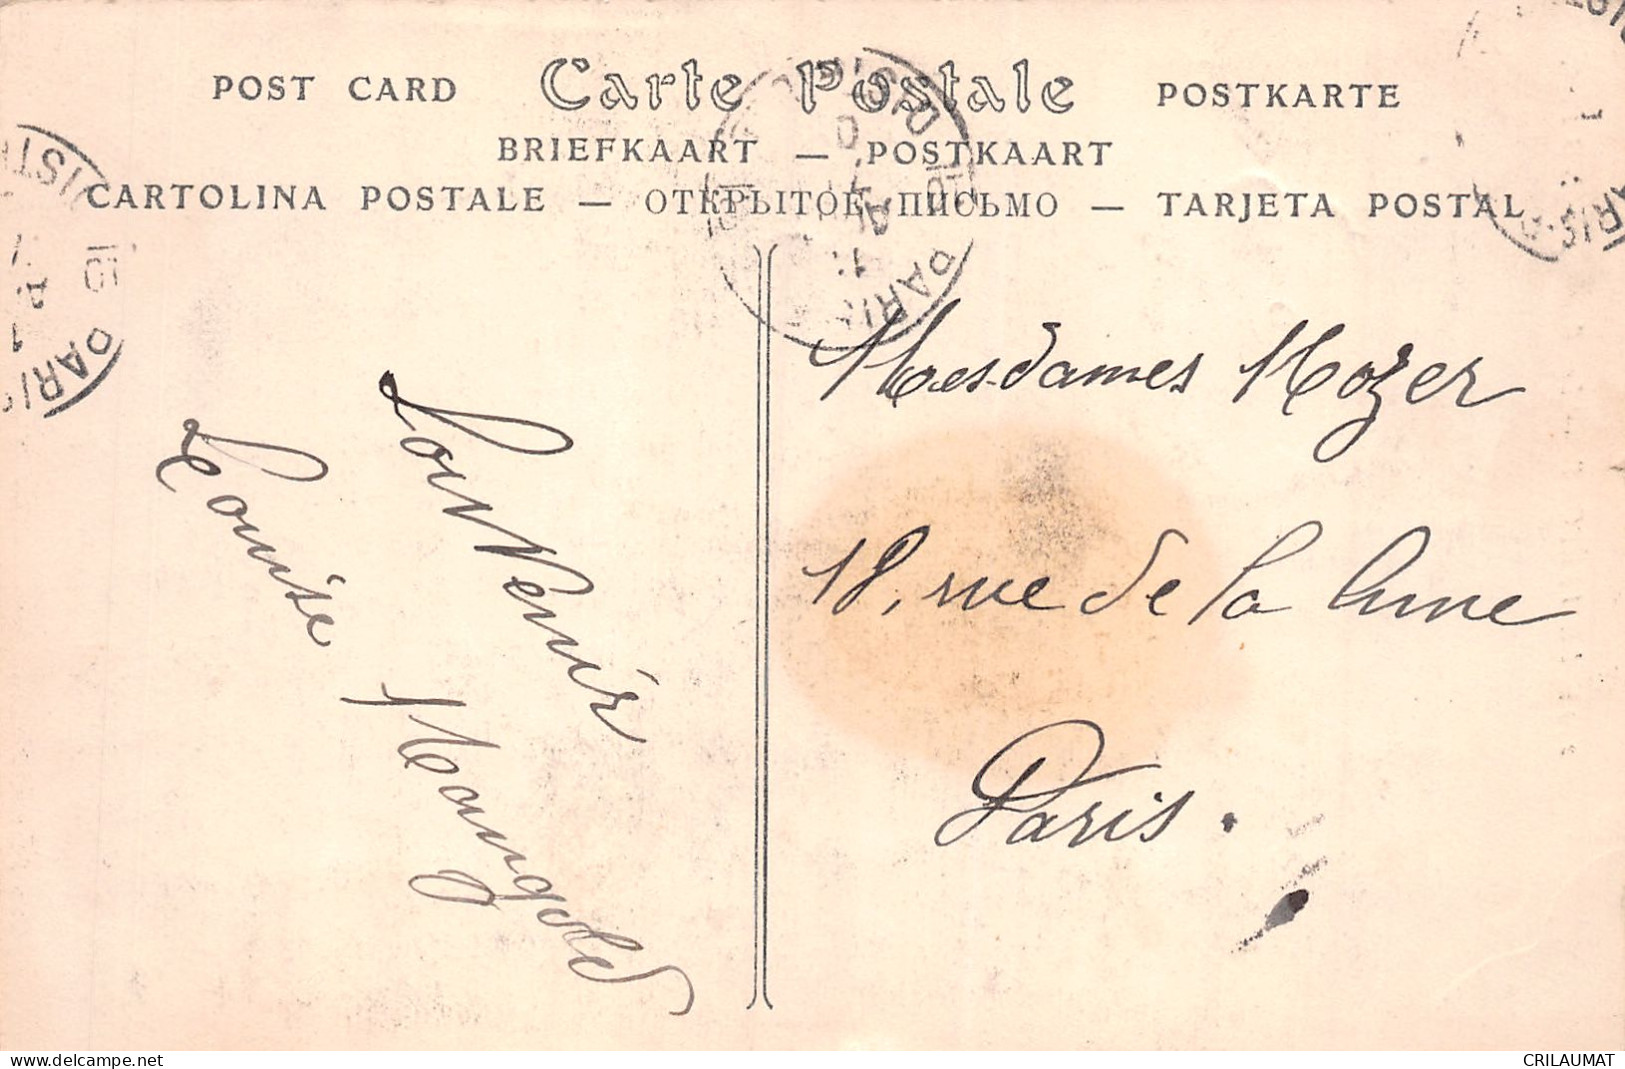 POST CARD Carte Postale POSTKARTE
BRIEFKAART — POSTKAART
CARTOLINA POSTALE — ОТКРЫТОЕ ПИСЬМО — TARJETA POSTAL
Souvenir
Louise Mangold
Mesdames Mozer
18, rue de la Lune
Paris.
PARIS
PARIS
website: www.delcampe.net
CRILAUMAT